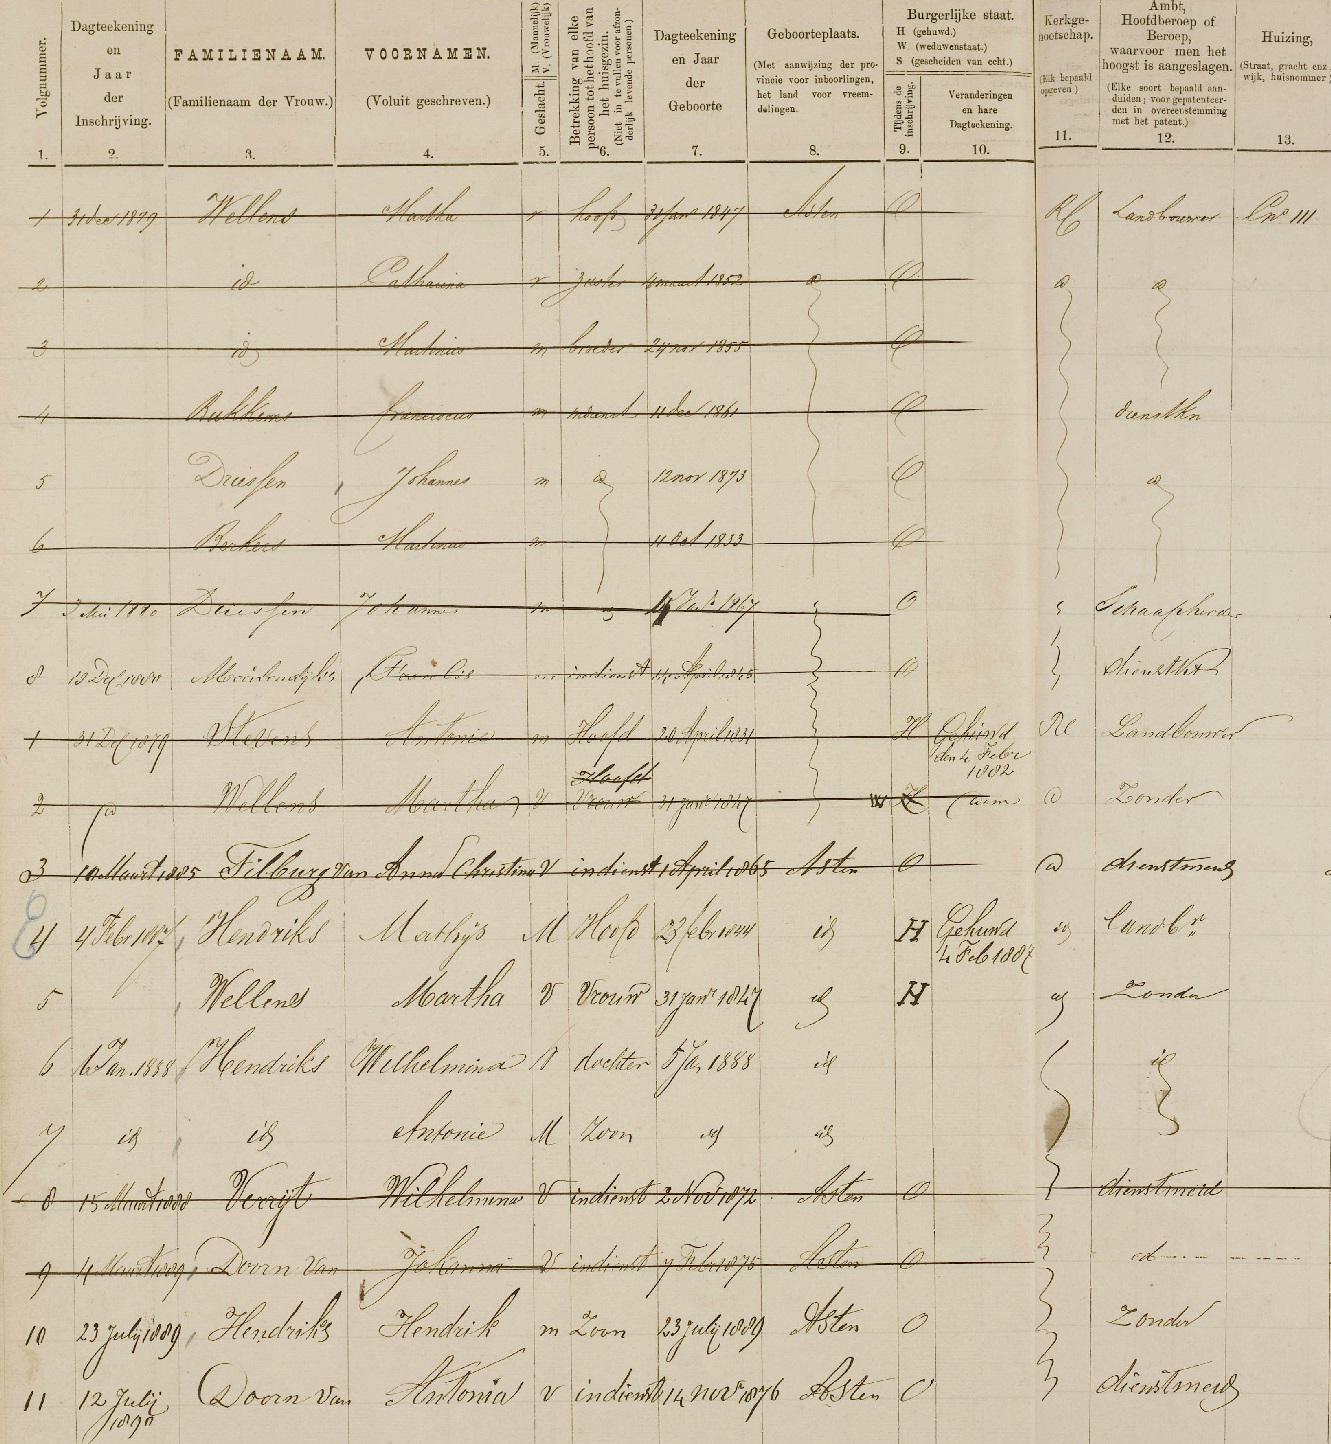 Volgnummer.
Dagteekening
en
Jaar
der
Inschrijving.
FAMILIENAAM.
(Familienaam der Vrouw.)
VOORNAMEN.
(Voluit geschreven.)
Geslacht. M. (Mannelijk) V. (Vrouwelijk)
Betrekking van elke
persoon tot het hoofd van
het huisgezin.
(Niet in te vullen voor afzon-
derlijk levende personen.)
Dagteekening
en Jaar
der
Geboorte
Geboorteplaats.
(Met aanwijzing der pro-
vincie voor inboorlingen,
het land voor vreem-
delingen.
Burgerlijke staat.
H (gehuwd.)
W. (weduwenstaat.)
S (gescheiden van echt.)
Tijdens de
inschrijving.
Veranderingen
en hare
Dagteekening.
Kerkge-
nootschap.
(Elk bepaald
opgeven)
Ambt,
Hoofdberoep of
Beroep,
waarvoor men het
hoogst is aangeslagen.
(Elke soort bepaald aan-
duiden; voor gepatenteer-
den in overeenstemming
met het patent.)
Huizing,
(Straat, gracht enz
wijk, huisnummer
1. 2. 3. 4. 5. 6. 7. 8. 9. 10. 11. 12. 13.
1 31 dec 1879 Wellens Martha v hoofd 31 jan 1847 Asten O RC Landbouwer
2 id Catharina v zuster 4 maart 1852 O
3 id Martinus m broeder 24 nov 1855 O
4 Bukkems franciscus m indienst 11 dec 1861 O dienstkn
5 Driessen Johannes m 12 nov 1873 O
6 Berkers Martinus m 11 oct 1833 O
7 Driessen Johannes m O Schaapherder
8 m indienst 14 April 1845 O
1 31 Dec 1879 Stevens Antonie m Hoofd 20 April 1831 H RC Landbouwer
2 Wellens Martha V Hoofd Vrouw 31 jan 1847 W H Zonder
3 10 Maart 1885 Tilburg van Anna Christina V indienst 1 April 1865 Asten O dienstmeid
4 4 Febr 1887 Hendriks Mathijs M Hoofd 23 febr 1844 id H Gehuwd
4 Feb 1887
5 Wellens Martha V Vrouw 31 jan 1847 id H id Zonder
6 Jan. 1888 Hendriks Wilhelmina V dochter 5 Jan 1888 id id
7 id id Antonie M Zoon id id
8 15 Maart 1888 Verrijt Wilhelmina V indienst 2 Nov 1872 Asten O dienstmeid
9 4 Maart 1889 Doorn van Johanna V indienst 7 Feb 1875 Asten O id
10 23 July 1889 Hendriks Hendrik m Zoon 23 July 1889 Asten O Zonder
11 12 July
1890 Doorn van Antonia v indienst 14 nov 1876 Asten O dienstmeid